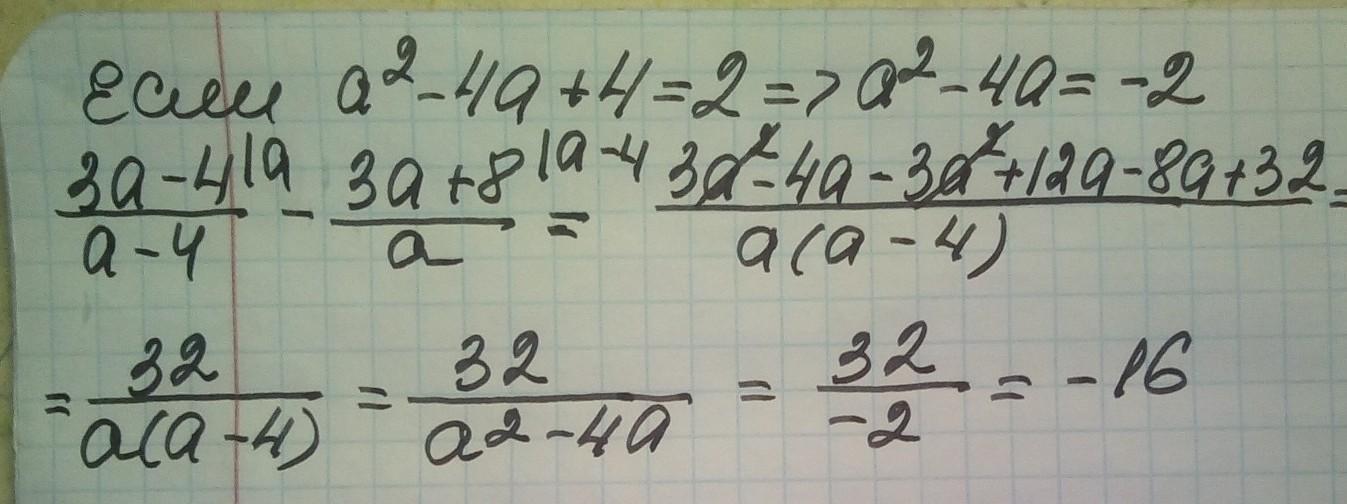 Если a²-4a+4=2=>a²-4a=-2
(3a-4|a)/(a-4) - (3a+8|a-4)/a = (3a²-4a-3a²+12a-8a+32)/(a(a-4)) =
= 32/(a(a-4)) = 32/(a2-4a) = 32/(-2) = -16